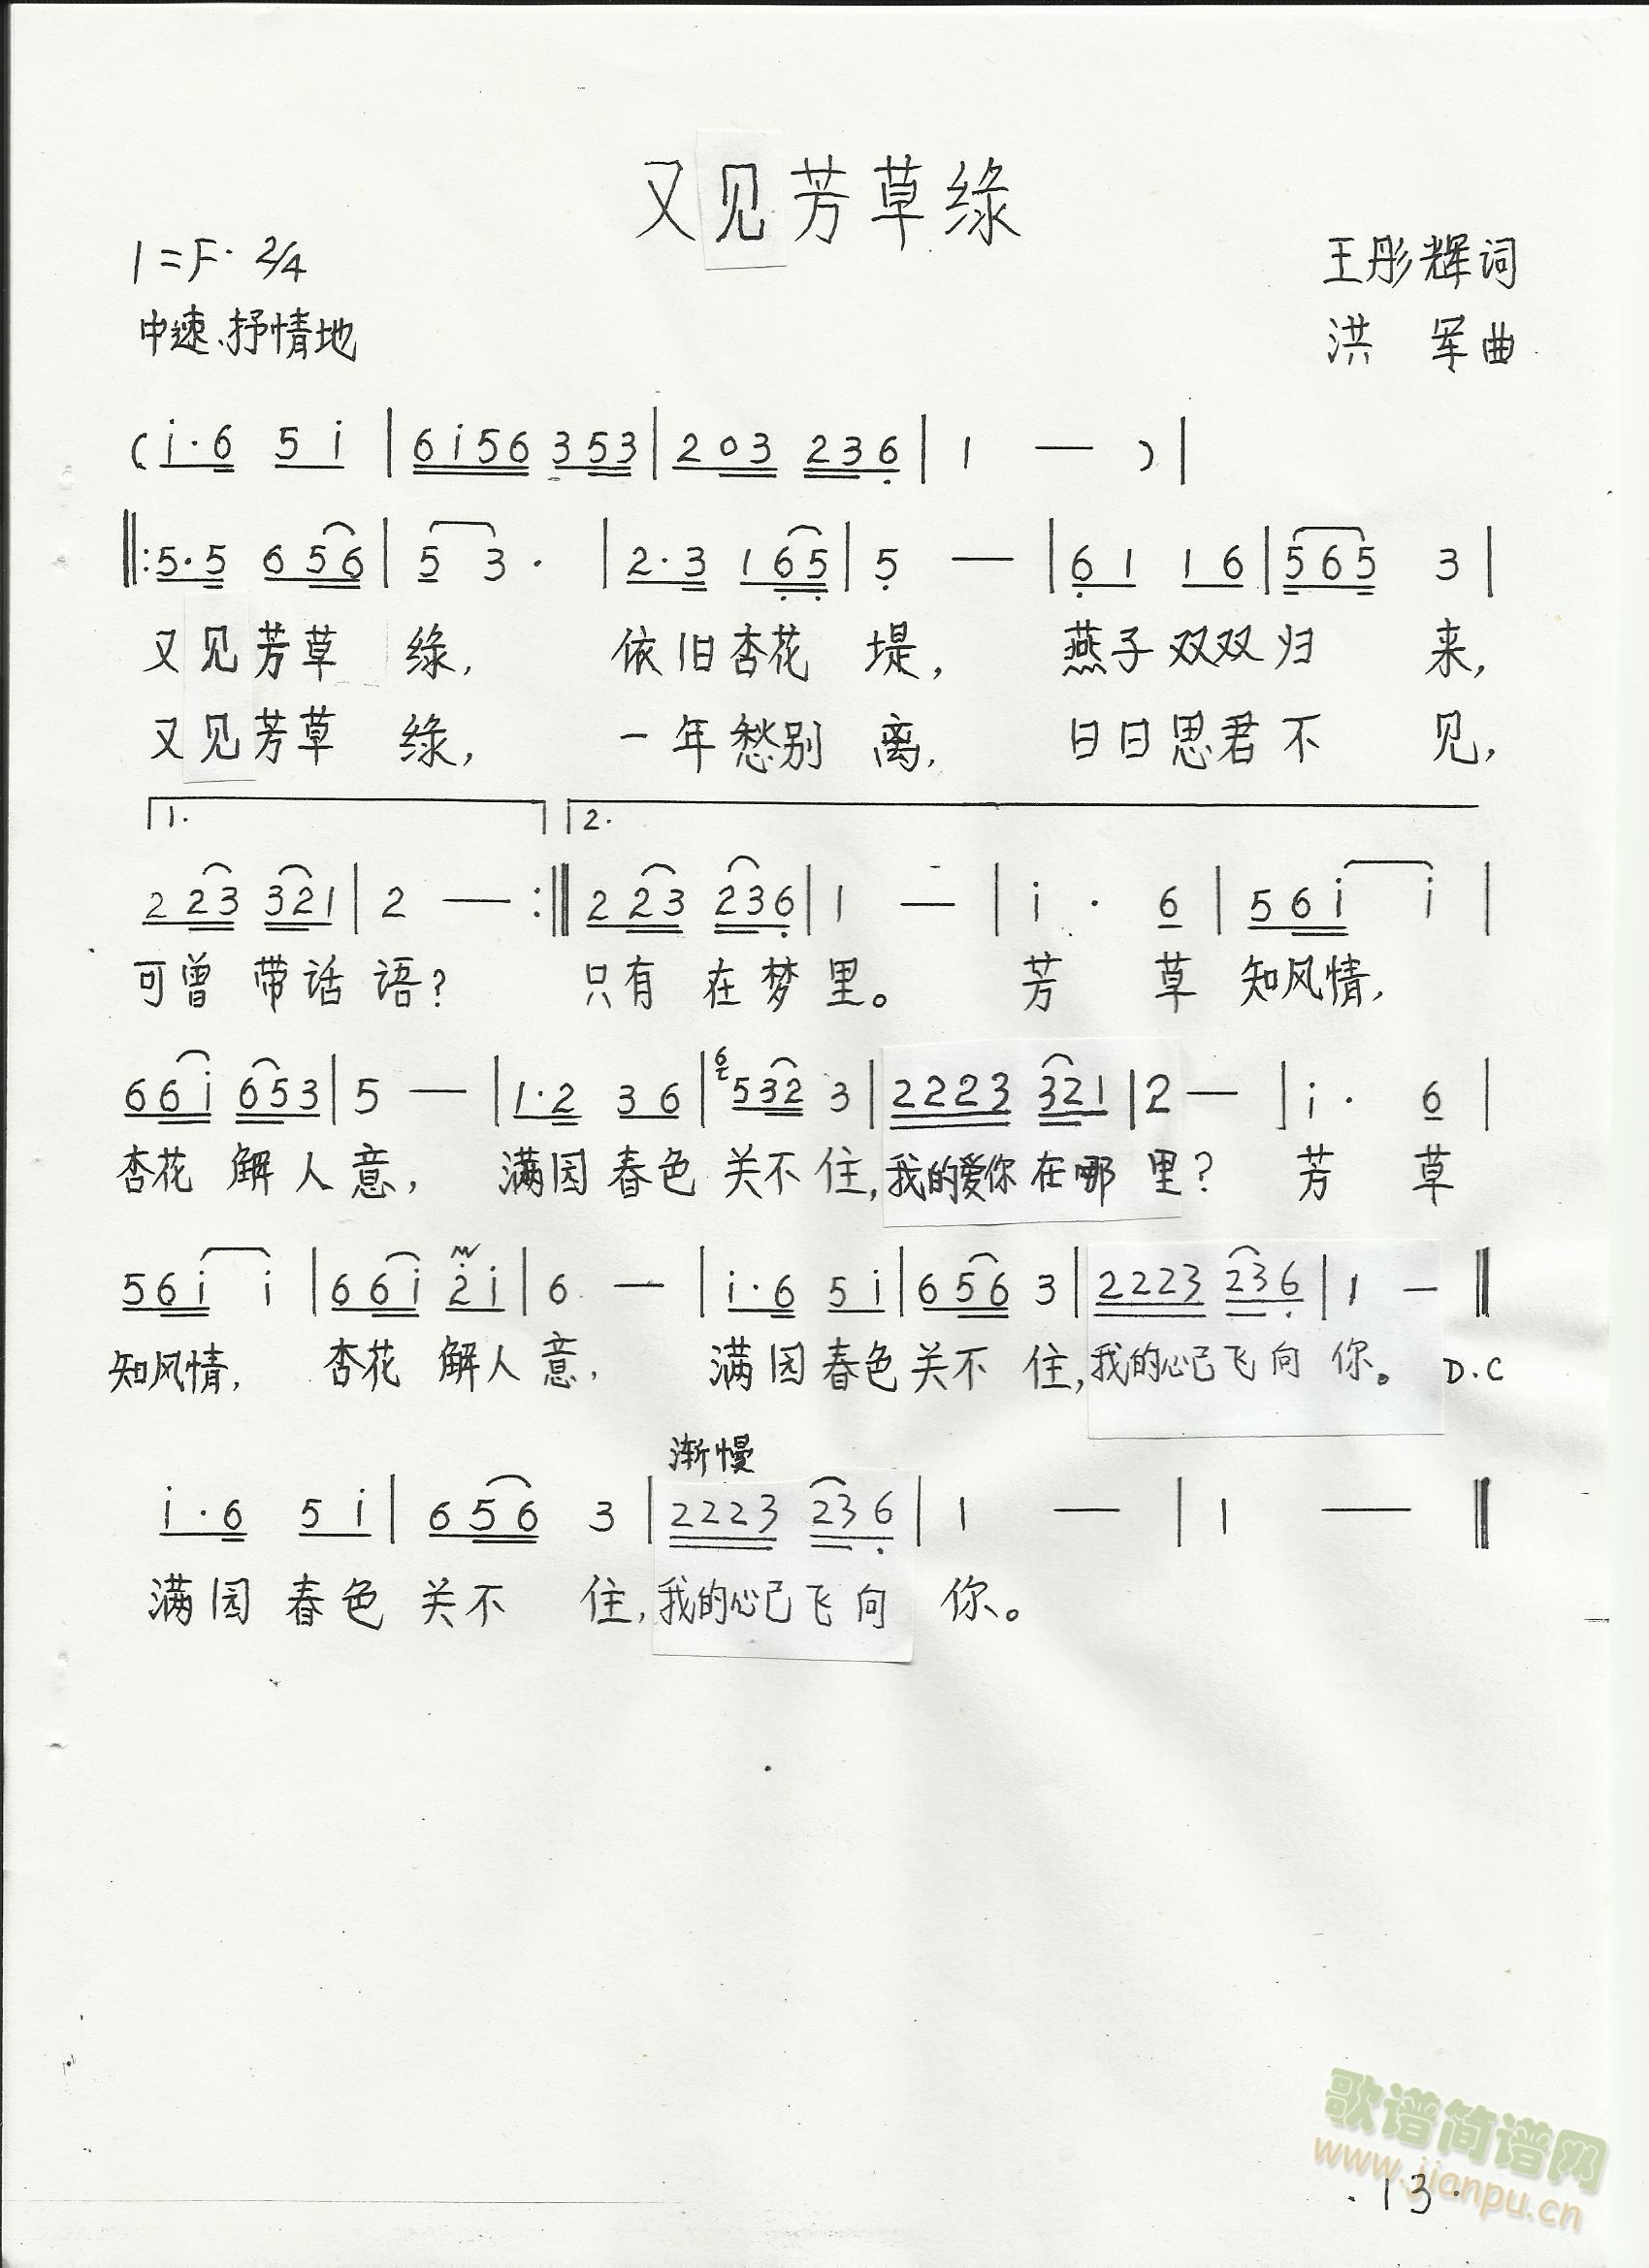 又见芳草绿
1=F 2/4
王彤辉词
中速、抒情地
洪 军曲
(i·6 5 i | 6i56 353 | 203 236 | 1 — ) |
‖:5·5 656 | 5 3· | 2·3 165 | 5 — | 61 16 | 565 3 |
又见芳草 绿, 依旧杏花 堤, 燕子双双归 来,
又见芳草 绿, 一年愁别 离, 日日思君不 见,
1. 2.
223 321 | 2 — :‖ 223 236 | 1 — | i · 6 | 56i i |
可曾 带话 语? 只有 在梦 里。 芳 草 知风情,
66i 653 | 5 — | 1·2 36 | 6 532 3 | 2223 321 | 2 — | i· 6 |
杏花 解人意, 满园春色 关不住,我的爱你在哪 里? 芳 草
56i i | 66i 2i | 6 — | i·6 5i | 656 3 | 2223 236 | 1 — ‖
知风情, 杏花 解人意, 满园春色关不 住,我的心已飞向 你。 D.C
渐慢
i·6 5i | 656 3 | 2223 236 | 1 — | 1 — ‖
满园 春色 关不 住,我的心已飞向 你。
歌谱简谱网
www.jianpu.cn
·13·